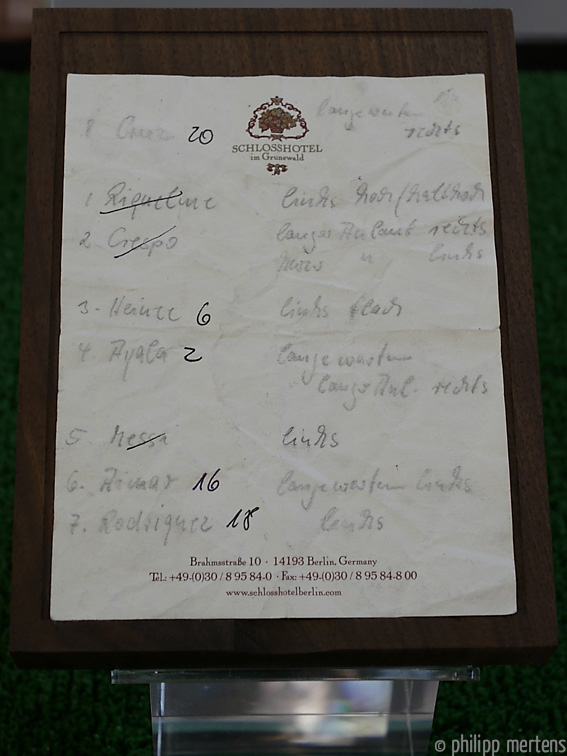 lange warten
8 Cruz 20 rechts
SCHLOSSHOTEL
im Grunewald
1 Riquelme links hoch/halbhoch
2. Crespo langer Anlauf rechts
links
3. Heinze 6 links flach
4. Ayala 2 lange warten
langer Anl. rechts
5. Messi links
6. Aimar 16 lange warten links
7. Rodriguez 18 links
Brahmsstraße 10 · 14193 Berlin, Germany
Tel.: +49-(0)30 / 8 95 84-0 · Fax: +49-(0)30 / 8 95 84-8 00
www.schlosshotelberlin.com
© philipp mertens